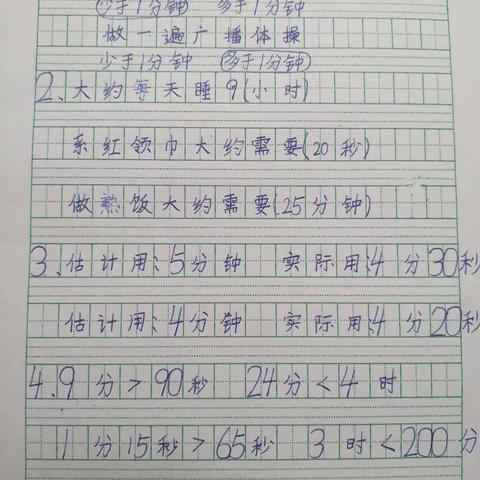 少于1分钟 多于1分钟
做一遍广播体操
少于1分钟 多于1分钟
2、大约每天睡9(小时)
系红领巾大约需要(20秒)
做熟饭大约需要(25分钟)
3、估计用:5分钟 实际用:4分30秒
估计用:4分钟 实际用:4分20秒
4、9分>90秒 24分<4时
1分15秒>65秒 3时<200分